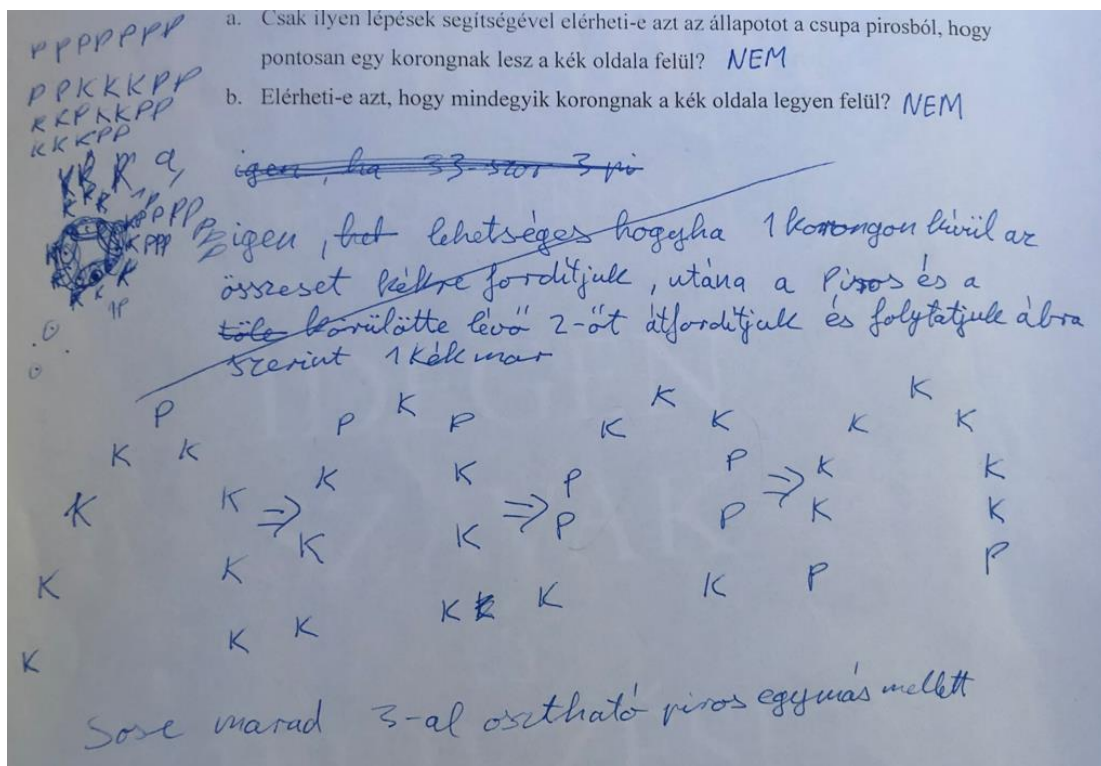 a. Csak ilyen lépések segítségével elérheti-e azt az állapotot a csupa pirosból, hogy
pontosan egy korongnak lesz a kék oldala felül? NEM
b. Elérheti-e azt, hogy mindegyik korongnak a kék oldala legyen felül? NEM
PPPPPPP
PPKKKPP
KKPKKPP
KKKPP
a,
igen, ha 33-szor 3 pi
igen, lehetséges hogyha 1 korongon kívül az
összeset kékre fordítjuk, utána a Piros és a
töle körülötte lévő 2-őt átfordítjuk és folytatjuk ábra
szerint 1 kék mar
P K P K K K
K K P K K K
K K ⇒ K K ⇒ P P ⇒ K K
K K K P P K K
K K K K K K P P
K
Sose marad 3-al osztható piros egymás mellett